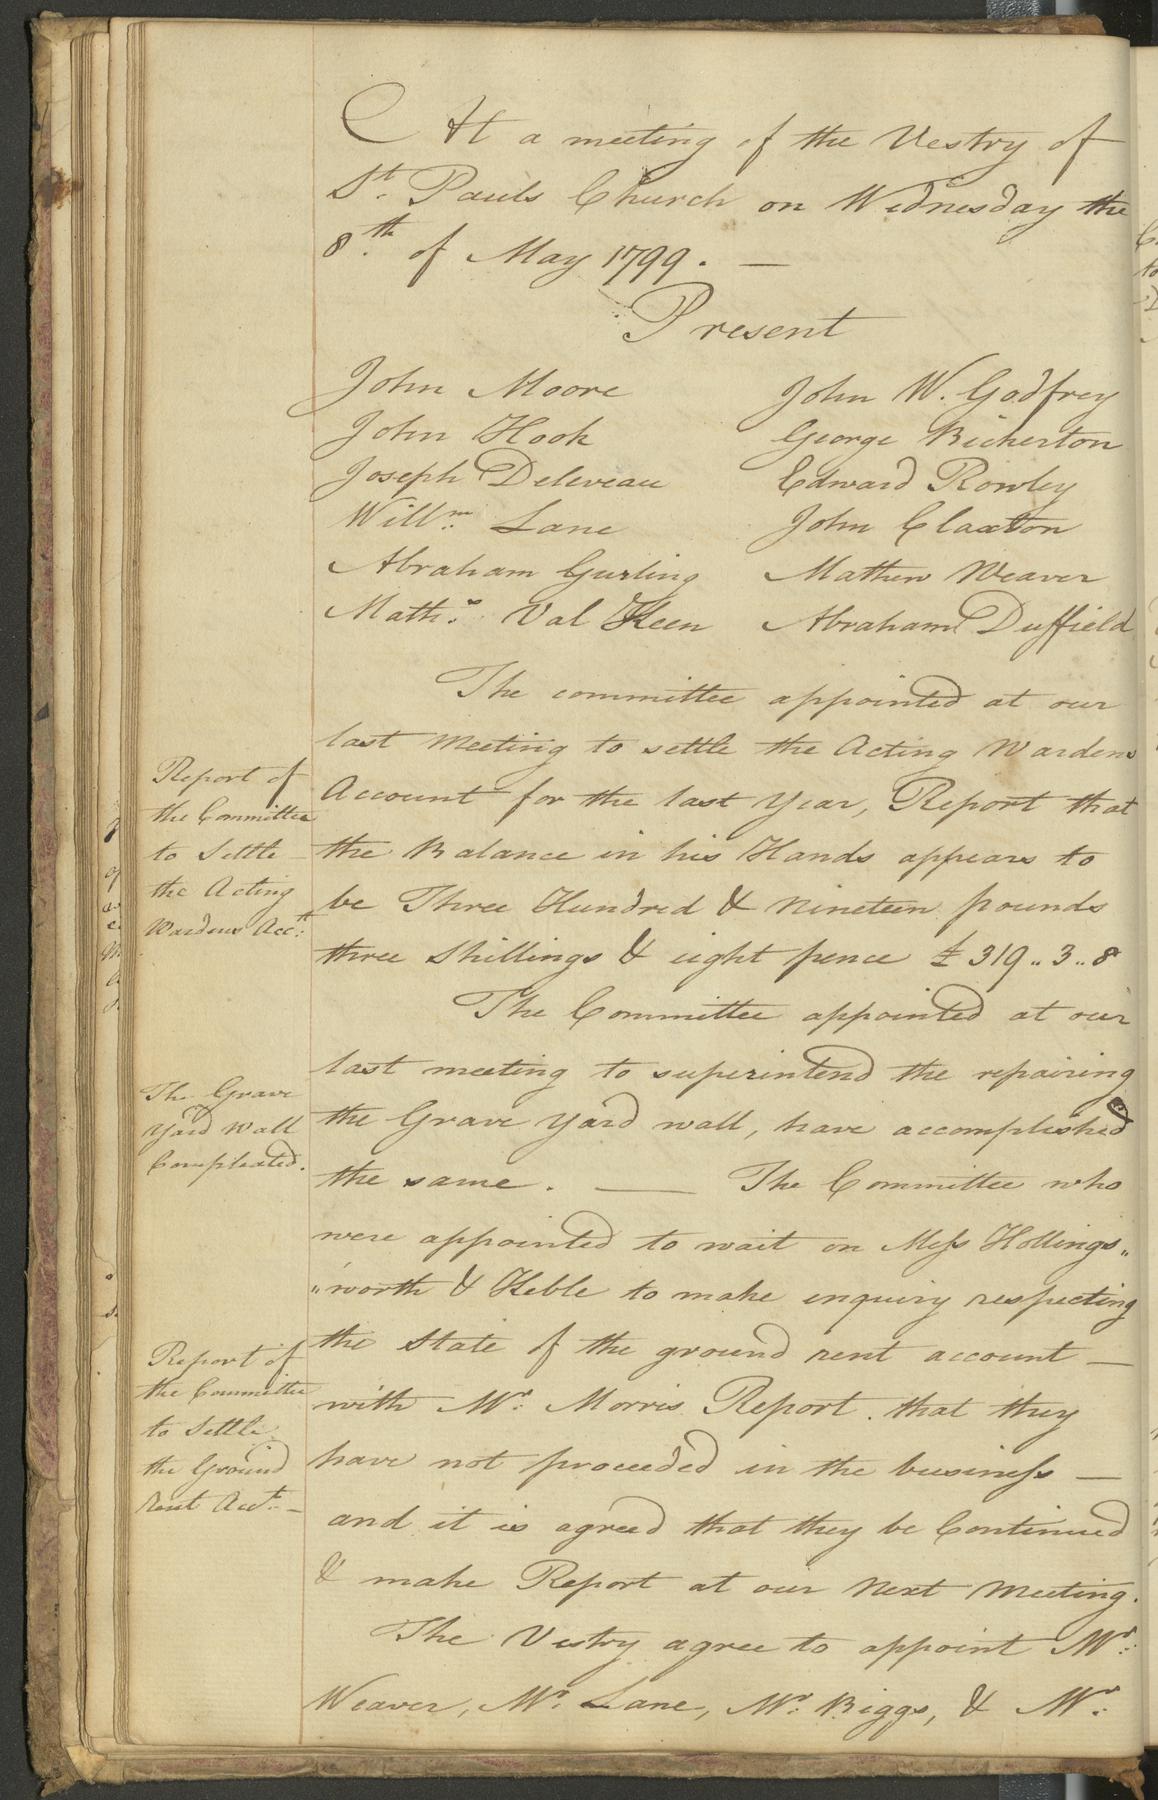 At a meeting of the Vestry of
St. Pauls Church on Wednesday the
8th. of May 1799. —
Present
John Moore
John Hook
Joseph Deleveau
Willm. Lane
Abraham Gurling
Maths. Val Keen
John W. Godfrey
George Bickerton
Edward Rowley
John Claxton
Mathew Weaver
Abraham Duffield
The committee appointed at our
last Meeting to settle the Acting Wardens
Account for the last Year, Report that
the Balance in his Hands appears to
be Three Hundred & Nineteen pounds
three Shillings & eight pence £319..3..8
Report of
the Committee
to Settle
the Acting
Wardens Acct.
The Committee appointed at our
last meeting to superintend the repairing
the Grave Yard wall, have accomplished
the same. — The Committee who
The Grave
Yard Wall
Compleated.
were appointed to wait on Mess Hollings„
„worth & Keble to make enquiry respecting
the State of the ground rent account —
with Mr. Morris Report that they
have not proceeded in the business —
and it is agreed that they be Continued
& make Report at our Next Meeting.
Report of
the Committee
to Settle
the Ground
Rent Acct. —
The Vestry agree to appoint Mr.
Weaver, Mr. Lane, Mr. Biggs, & Mr.